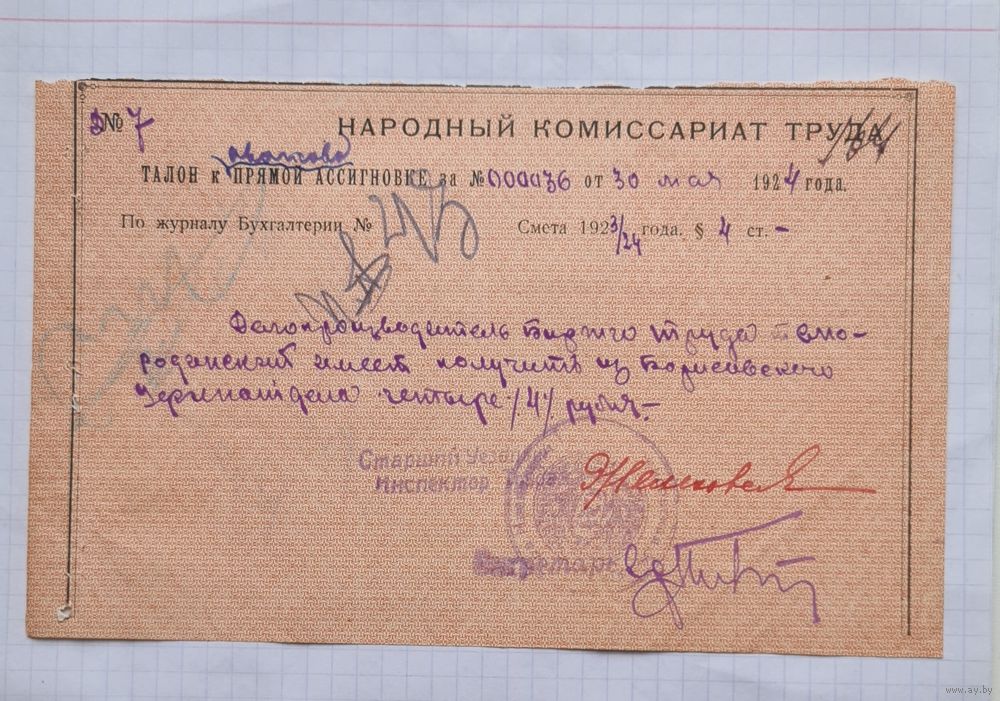 № 7
НАРОДНЫЙ КОМИССАРИАТ ТРУДА
авансовой
ТАЛОН к ПРЯМОЙ АССИГНОВКЕ за № 000036 от 30 мая 1924 года.
По журналу Бухгалтерии № Смета 1923/24 года. § 4 ст. -
Делопроизводитель Биржи труда
имеет получить из Борисовского
четыре /4/ рубля.-
Старший Уездный
Инспектор
Секретарь
www.ay.by